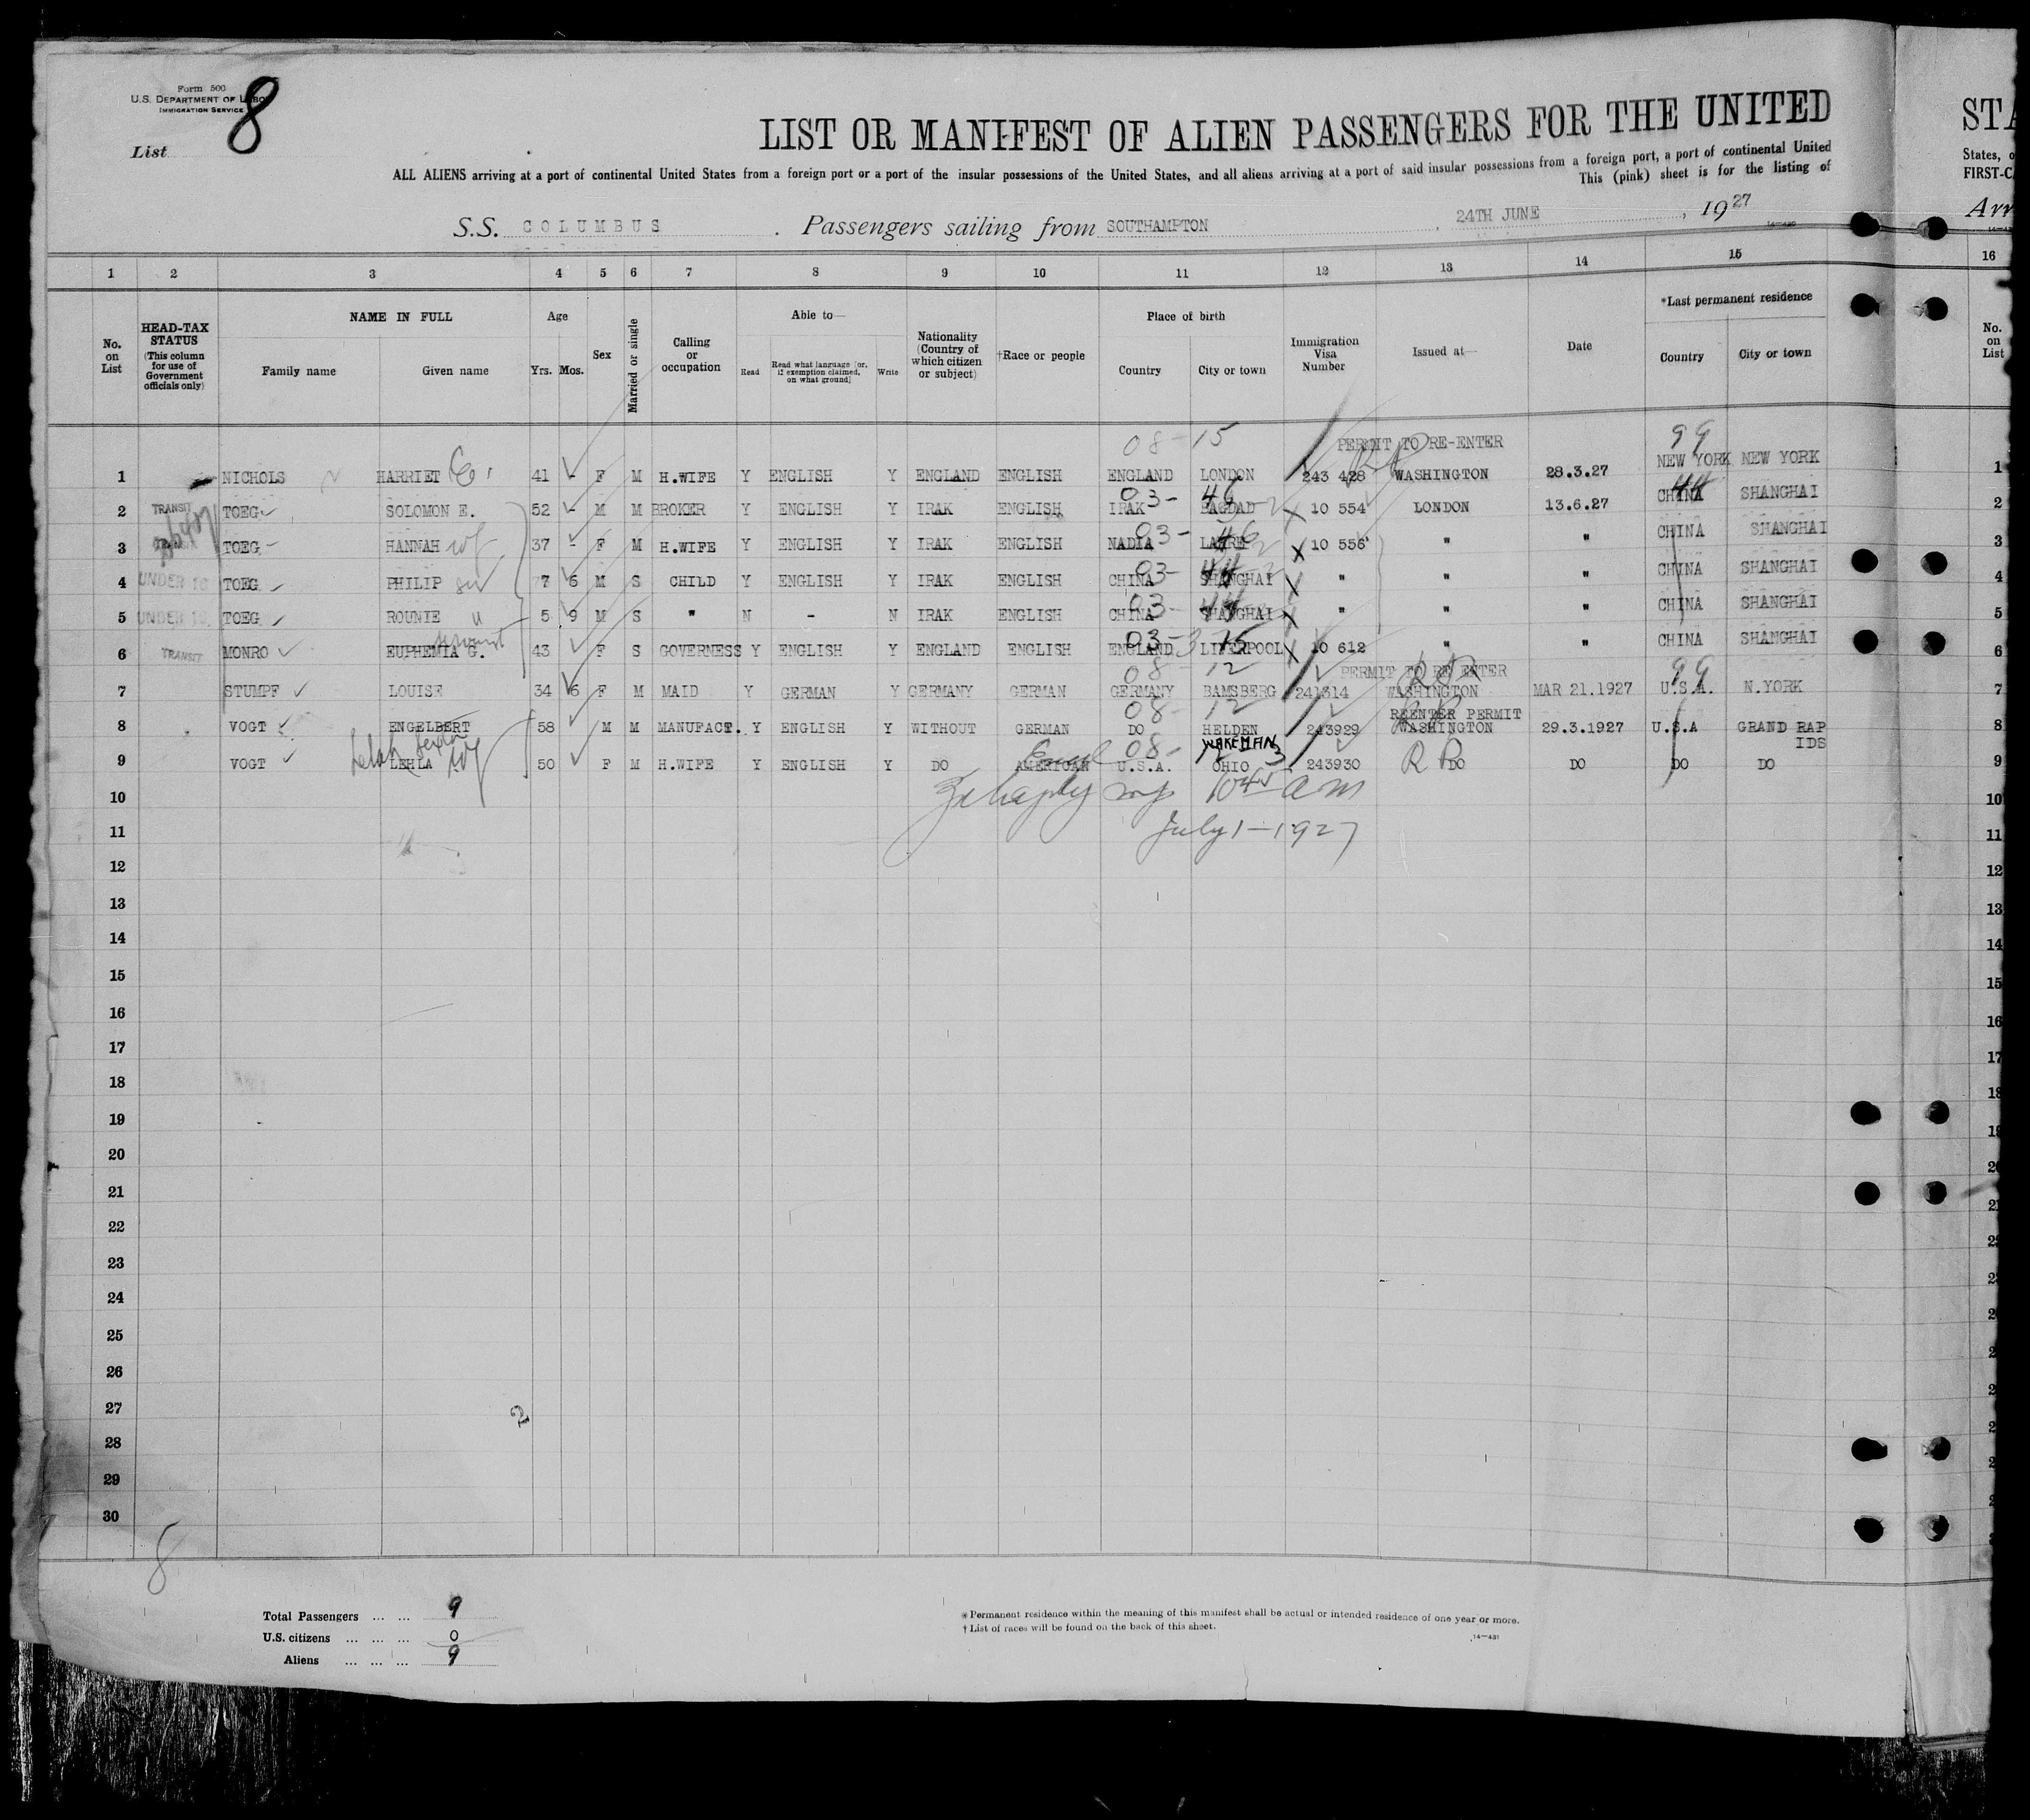 Form 500
U.S. DEPARTMENT OF LABOR
IMMIGRATION SERVICE
8
List
LIST OR MANIFEST OF ALIEN PASSENGERS FOR THE UNITED
ALL ALIENS arriving at a port of continental United States from a foreign port or a port of the insular possessions of the United States, and all aliens arriving at a port of said insular possessions from a foreign port, a port of continental United
This (pink) sheet is for the listing of
S.S. COLUMBUS . Passengers sailing from SOUTHAMPTON , 24TH JUNE , 1927
STA
States, o
FIRST-C
Arr
1 2 3 4 5 6 7 8 9 10 11 12 13 14 15 16
No. on List
HEAD-TAX STATUS (This column for use of Government officials only)
NAME IN FULL Family name Given name
Age Yrs. Mos.
Sex
Married or single
Calling or occupation
Able to— Read Read what language [or, if exemption claimed, on what ground] Write
Nationality (Country of which citizen or subject)
†Race or people
Place of birth Country City or town
Immigration Visa Number
Issued at—
Date
*Last permanent residence Country City or town
No. on List
08-15 PERMIT TO RE-ENTER 99
1 NICHOLS HARRIET E. 41 - F M H.WIFE Y ENGLISH Y ENGLAND ENGLISH ENGLAND LONDON 243 428 WASHINGTON 28.3.27 NEW YORK NEW YORK 1
03- 46 44
2 TRANSIT TOEG SOLOMON E. 52 - M M BROKER Y ENGLISH Y IRAK ENGLISH IRAK BAGDAD 10 554 LONDON 13.6.27 CHINA SHANGHAI 2
03- 46
3 TOEG HANNAH wf 37 - F M H.WIFE Y ENGLISH Y IRAK ENGLISH NADIA LAHRE 10 556 " " CHINA SHANGHAI 3
03- 44
4 UNDER 16 TOEG PHILIP 7 6 M S CHILD Y ENGLISH Y IRAK ENGLISH CHINA SHANGHAI " " " CHINA SHANGHAI 4
03- 44
5 UNDER 16 TOEG ROUNIE " 5 9 M S " N - N IRAK ENGLISH CHINA SHANGHAI " " " CHINA SHANGHAI 5
servant 03-3 15
6 TRANSIT MONRO EUPHEMIA G. 43 F S GOVERNESS Y ENGLISH Y ENGLAND ENGLISH ENGLAND LIVERPOOL 10 612 " " CHINA SHANGHAI 6
08 - 12 PERMIT TO RE ENTER 99
7 STUMPF LOUISE 34 6 F M MAID Y GERMAN Y GERMANY GERMAN GERMANY BAMSBERG 241314 WASHINGTON MAR 21.1927 U.S.A. N.YORK 7
08- 12 REENTER PERMIT
8 VOGT ENGELBERT 58 M M MANUFACT. Y ENGLISH Y WITHOUT GERMAN DO HELDEN 243929 WASHINGTON 29.3.1927 U.S.A GRAND RAP IDS 8
Lelah wf 08- WAKEMAN
9 VOGT LEHLA 50 F M H.WIFE Y ENGLISH Y DO AMERICAN U.S.A. OHIO 243930 R P DO DO DO DO 9
10 10 45 am 10
11 July 1-1927 11
12 12
13 13
14 14
15 15
16 16
17 17
18 18
19 19
20 20
21 21
22
23
24
25
26
27
28
29
30
8
Total Passengers ... ... 9
U.S. citizens ... ... ... 0
Aliens ... ... ... 9
*Permanent residence within the meaning of this manifest shall be actual or intended residence of one year or more.
†List of races will be found on the back of this sheet.
14—431